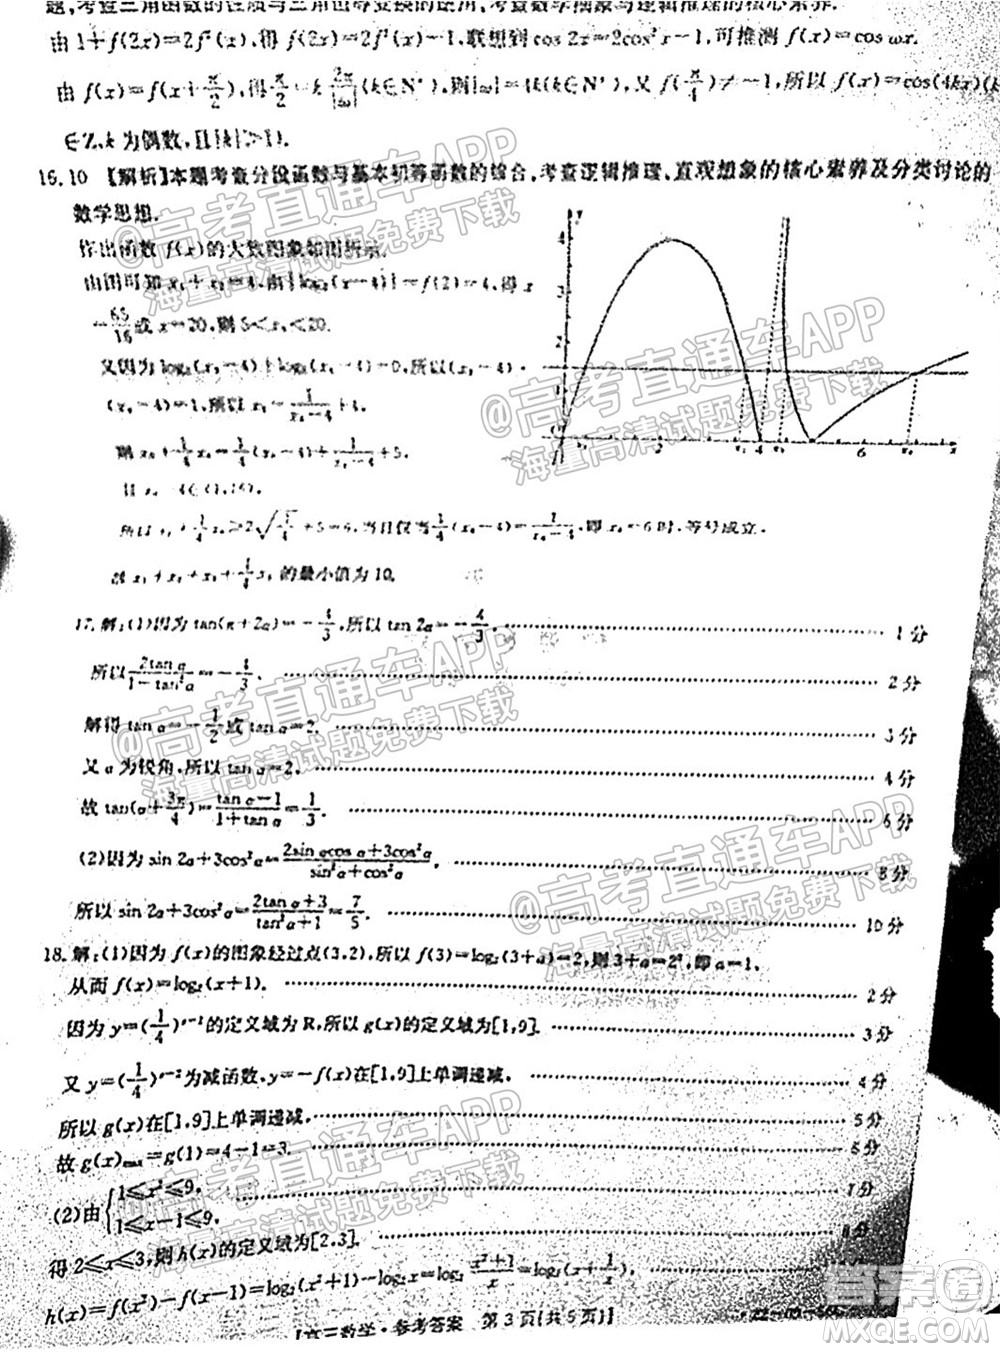 题,考查三角函数的性质与三角恒等变换的运用,考查数学抽象与逻辑推理的核心素养.
由 1+f(2x)=2f²(x),得 f(2x)=2f²(x)-1,联想到 cos 2x=2cos²x-1,可推测 f(x)=cos ωx.
由 f(x)=f(x+π/2),得 π/2=k·2π/|ω|(k∈N*),则|ω|=4k(k∈N*),又 f(π/4)≠-1,所以 f(x)=cos(4kx)(k
∈Z,k 为偶数,且|k|≥1).
16. 10 【解析】本题考查分段函数与基本初等函数的综合,考查逻辑推理、直观想象的核心素养及分类讨论的
数学思想.
作出函数 f(x)的大致图象如图所示.
由图可知 x₁+x₂=4,由|log₂(x-4)|=f(2)=4,得 x
=65/16或 x=20,则 5<x₄<20.
又因为 log₂(x₃-4)+log₂(x₄-4)=0,所以(x₃-4)·
(x₄-4)=1,所以 x₃=1/(x₄-4)+4.
则 x₃+1/4x₄=1/4(x₄-4)+1/(x₄-4)+5.
且 x₄-4∈(1,16).
所以 x₃+1/4x₄≥2√(1/4)+5=6,当且仅当1/4(x₄-4)=1/(x₄-4),即 x₄=6 时,等号成立.
故 x₁+x₂+x₃+1/4x₄ 的最小值为 10.
y
4
3
2
O
2
4
6
x
17. 解:(1)因为 tan(π+2α)=-4/3,所以 tan 2α=-4/3. 1 分
所以 2tan α/(1-tan²α)=-4/3. 2 分
解得 tan α=-1/2或 tan α=2. 3 分
又 α 为锐角,所以 tan α=2. 4 分
故 tan(α+3π/4)=(tan α-1)/(1+tan α)=1/3. 6 分
(2)因为 sin 2α+3cos²α=(2sin αcos α+3cos²α)/(sin²α+cos²α), 8 分
所以 sin 2α+3cos²α=(2tan α+3)/(tan²α+1)=7/5. 10 分
18. 解:(1)因为 f(x)的图象经过点(3,2),所以 f(3)=log₂(3+a)=2,则 3+a=2²,即 a=1,
从而 f(x)=log₂(x+1). 2 分
因为 y=(1/4)ˣ⁻²的定义域为 R,所以 g(x)的定义域为[1,9]. 3 分
又 y=(1/4)ˣ⁻²为减函数,y=-f(x)在[1,9]上单调递减, 4 分
所以 g(x)在[1,9]上单调递减. 5 分
故 g(x)max=g(1)=4-1=3. 6 分
(2)由{1≤x²≤9, 1≤x-1≤9, 7 分
得 2≤x≤3,则 h(x)的定义域为[2,3]. 8 分
h(x)=log₂(x²+1)-log₂x=log₂(x²+1)/x=log₂(x+1/x).
【高三数学·参考答案 第 3 页(共 5 页)】
@高考直通车APP
海量高清试题免费下载
@高考直通车APP
海量高清试题免费下载
@高考直通车APP
海量高清试题免费下载
@高考直通车APP
海量高清试题免费下载
@高考直通车APP
海量高清试题免费下载
答案圈
MXQE.COM